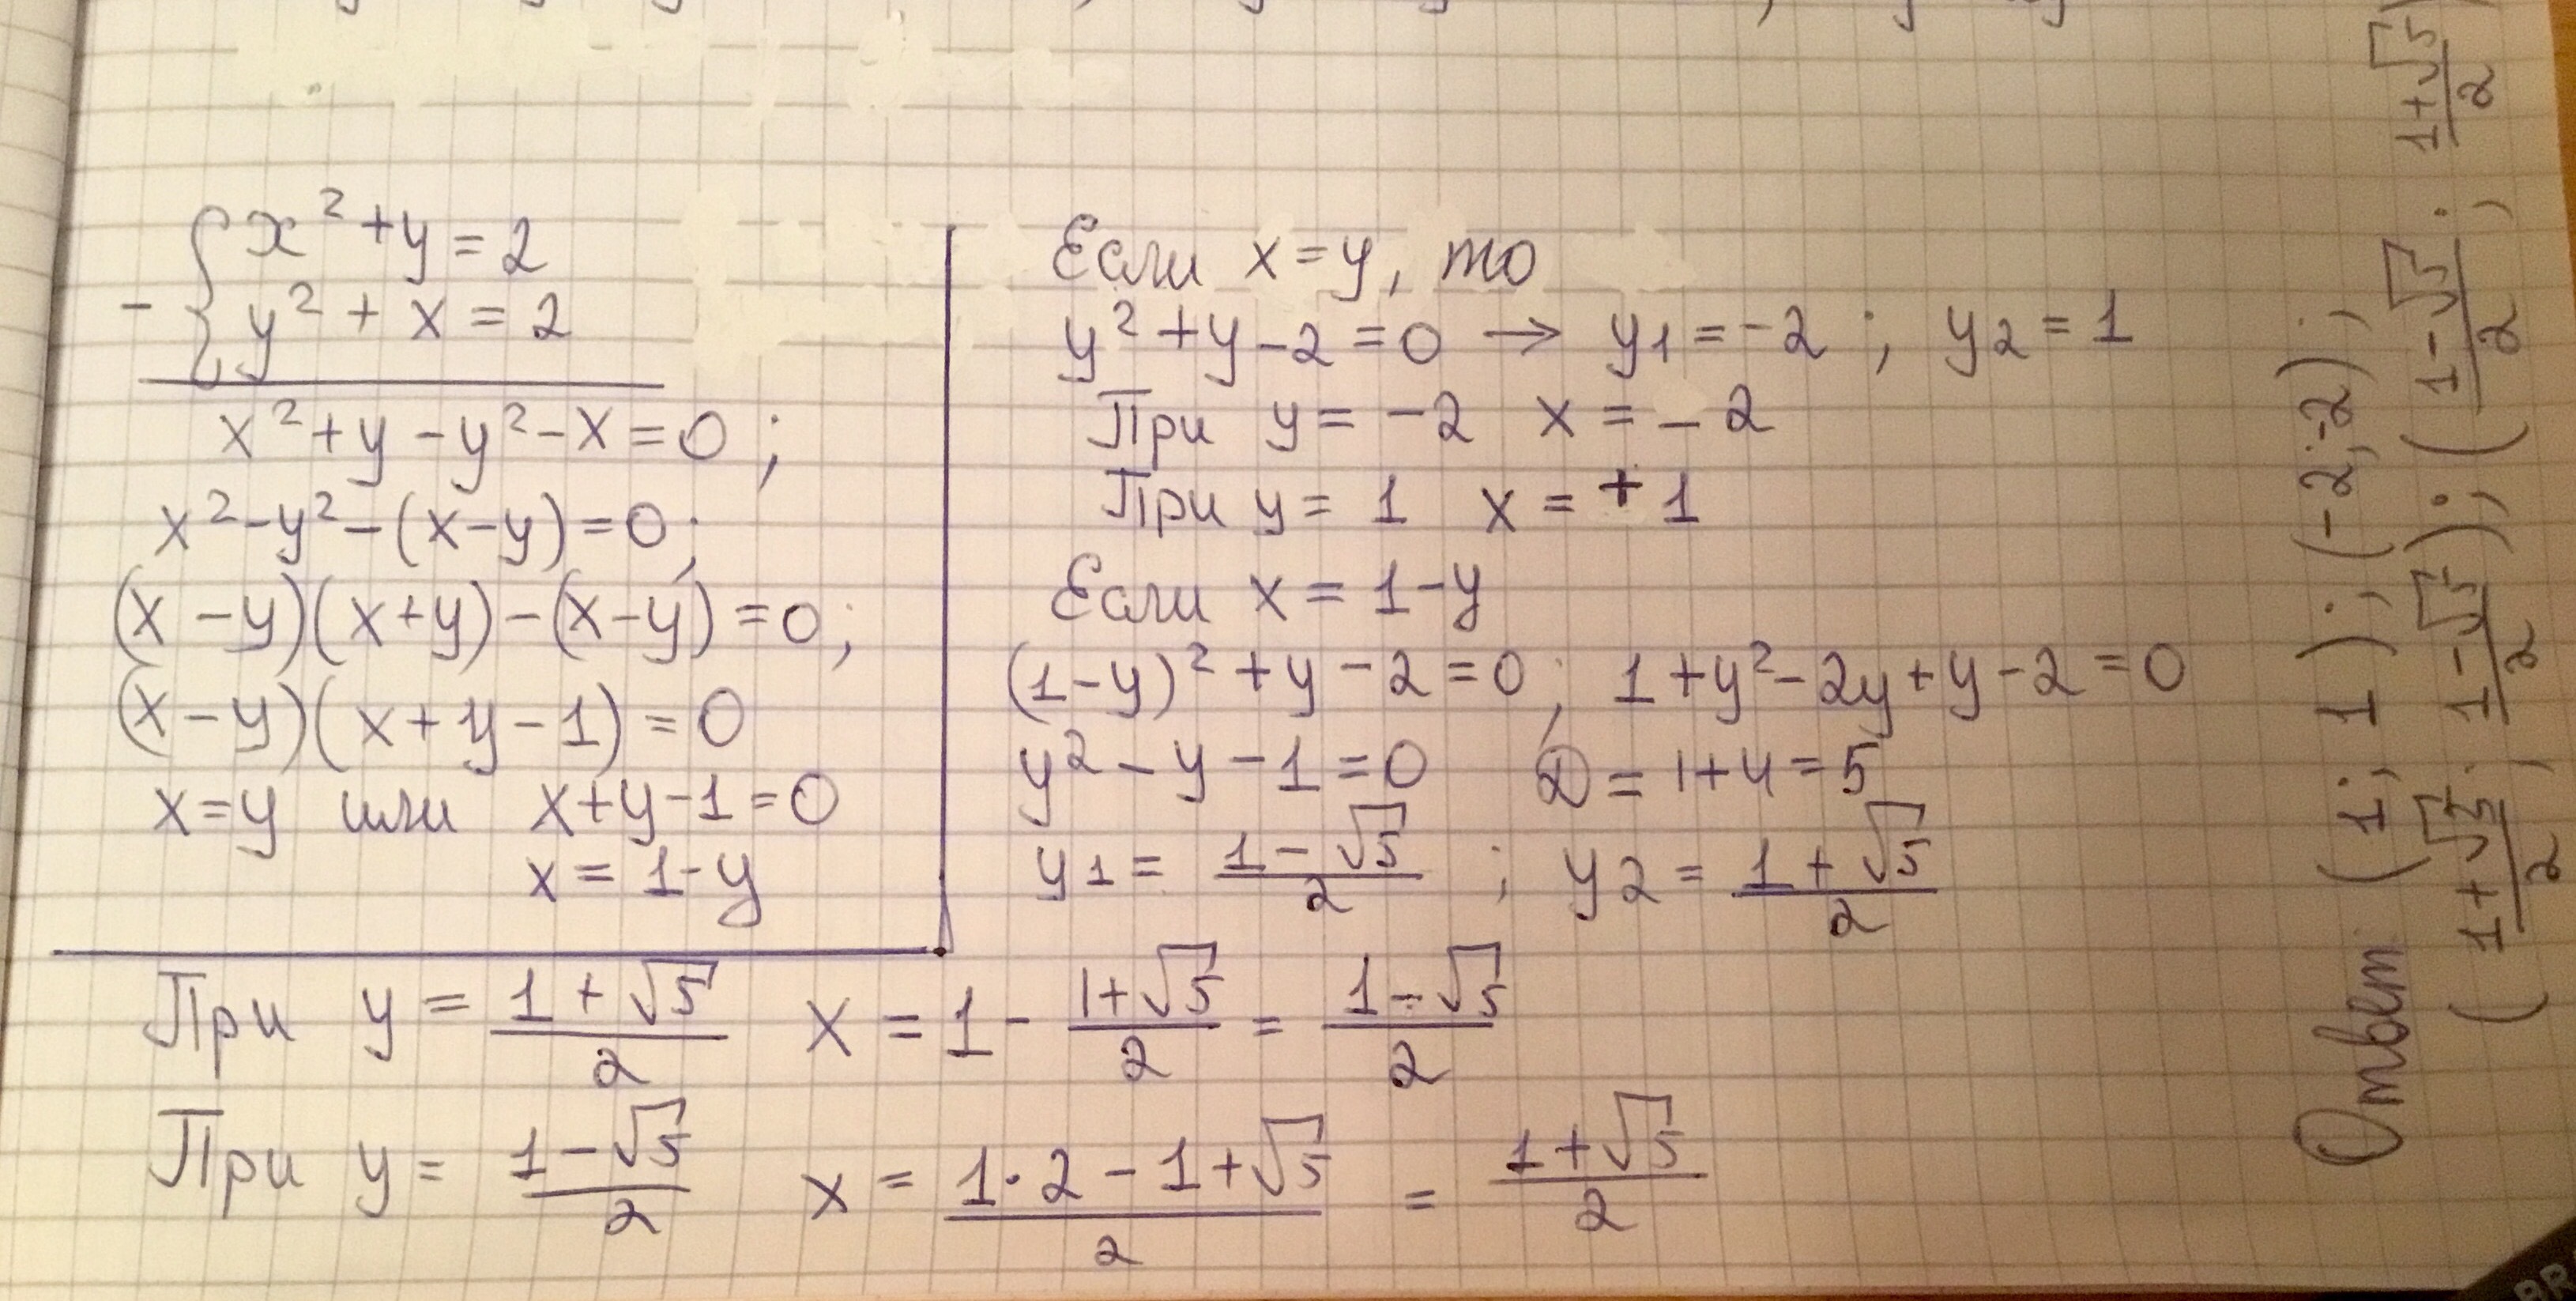 x² + y = 2
- { y² + x = 2
x² + y - y² - x = 0;
x² - y² - (x - y) = 0;
(x - y)(x + y) - (x - y) = 0;
(x - y)(x + y - 1) = 0
x = y или x + y - 1 = 0
x = 1 - y
Если x = y, то
y² + y - 2 = 0 → y1 = -2 ; y2 = 1
При y = -2 x = -2
При y = 1 x = +1
Если x = 1 - y
(1 - y)² + y - 2 = 0; 1 + y² - 2y + y - 2 = 0
y² - y - 1 = 0 D = 1 + 4 = 5
y1 = (1 - √5)/2 ; y2 = (1 + √5)/2
При y = (1 + √5)/2 x = 1 - (1 + √5)/2 = (1 - √5)/2
При y = (1 - √5)/2 x = (1·2 - 1 + √5)/2 = (1 + √5)/2
Ответ (1; 1); (-2; -2);
((1 + √5)/2; (1 - √5)/2); ((1 - √5)/2; (1 + √5)/2)